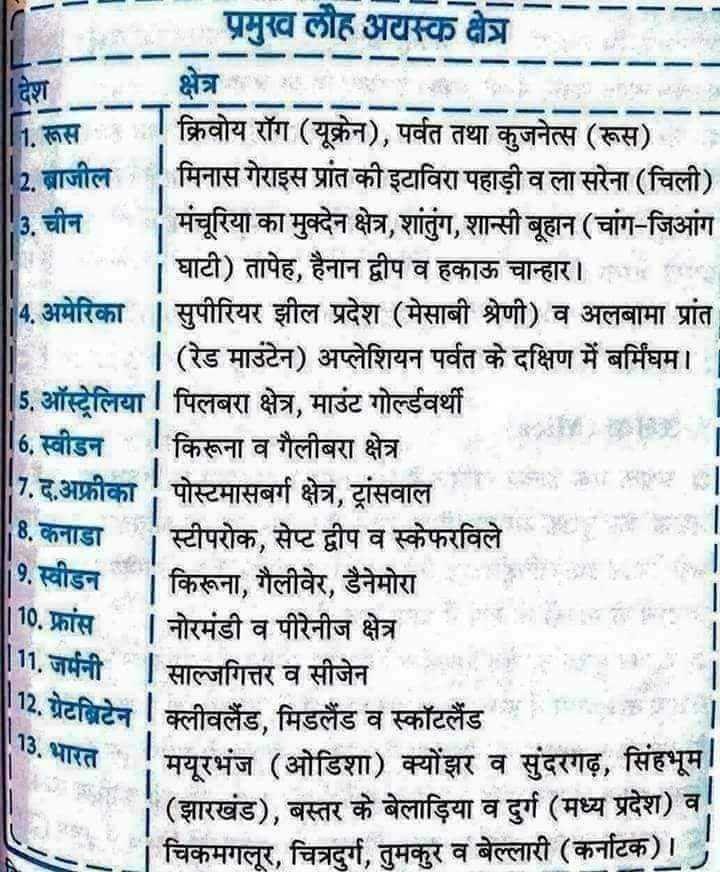 प्रमुख लौह अयस्क क्षेत्र
देश क्षेत्र
1. रूस क्रिवोय रॉग (यूक्रेन), पर्वत तथा कुजनेत्स (रूस)
2. ब्राजील मिनास गेराइस प्रांत की इटाविरा पहाड़ी व ला सरेना (चिली)
3. चीन मंचूरिया का मुक्देन क्षेत्र, शांतुंग, शान्सी बूहान (चांग-जिआंग
घाटी) तापेह, हैनान द्वीप व हकाऊ चान्हार।
4. अमेरिका सुपीरियर झील प्रदेश (मेसाबी श्रेणी) व अलबामा प्रांत
(रेड माउंटेन) अप्लेशियन पर्वत के दक्षिण में बर्मिंघम।
5. ऑस्ट्रेलिया पिलबरा क्षेत्र, माउंट गोर्ल्डवर्थी
6. स्वीडन किरूना व गैलीबरा क्षेत्र
7. द.अफ्रीका पोस्टमासबर्ग क्षेत्र, ट्रांसवाल
8. कनाडा स्टीपरोक, सेप्ट द्वीप व स्केफरविले
9. स्वीडन किरूना, गैलीवेर, डैनेमोरा
10. फ्रांस नोरमंडी व पीरेनीज क्षेत्र
11. जर्मनी साल्जगित्तर व सीजेन
12. ग्रेटब्रिटेन क्लीवलैंड, मिडलैंड व स्कॉटलैंड
13. भारत मयूरभंज (ओडिशा) क्योंझर व सुंदरगढ़, सिंहभूम
(झारखंड), बस्तर के बेलाड़िया व दुर्ग (मध्य प्रदेश) व
चिकमगलूर, चित्रदुर्ग, तुमकुर व बेल्लारी (कर्नाटक)।